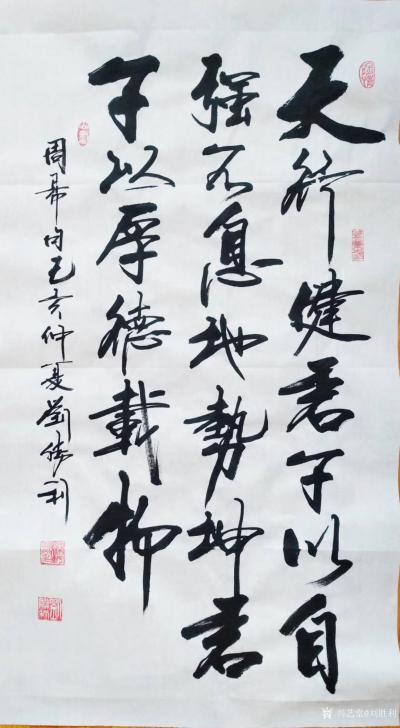 天行健君子以自
强不息地势坤君
子以厚德載物
周易句己亥仲夏劉勝利
兴艺堂@刘胜利